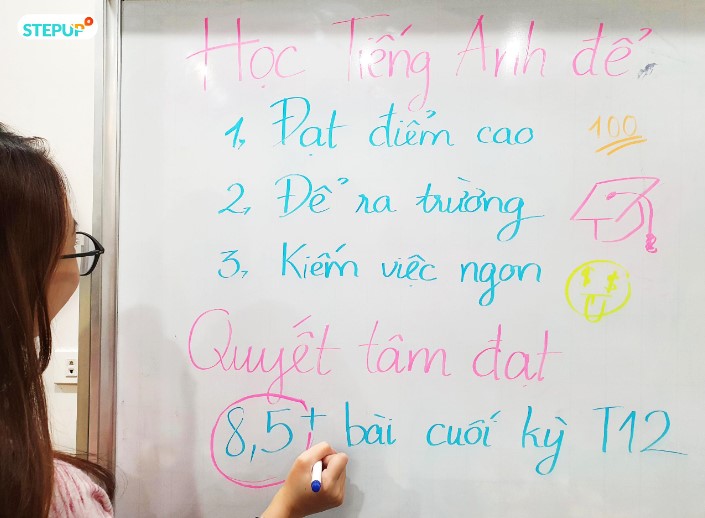 STEPUP
Học Tiếng Anh để
1, Đạt điểm cao 100
2, Để ra trường
3, Kiếm việc ngon
Quyết tâm đạt
8,5+ bài cuối kỳ T12